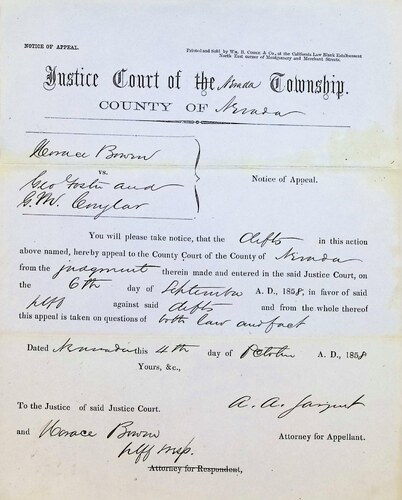 NOTICE OF APPEAL.
Printed and sold by Wm. B. Cooke & Co., at the California Law Blank Establishment
North East corner of Montgomery and Merchant Streets.
Justice Court of the Nevada Township.
COUNTY OF Nevada
Horace Bowen
vs.
Geo Foster and
G. W.
Notice of Appeal.
You will please take notice, that the defts in this action
above named, hereby appeal to the County Court of the County of Nevada
from the judgment therein made and entered in the said Justice Court, on
the 6th day of September A. D., 1858, in favor of said
plff against said defts and from the whole thereof
this appeal is taken on questions of both law and fact
Dated Nevada this 4th day of October A. D., 1858
Yours, &c.,
To the Justice of said Justice Court.
A. A. Sargent
and Horace Bowen
Attorney for Appellant.
plff
Attorney for Respondent,